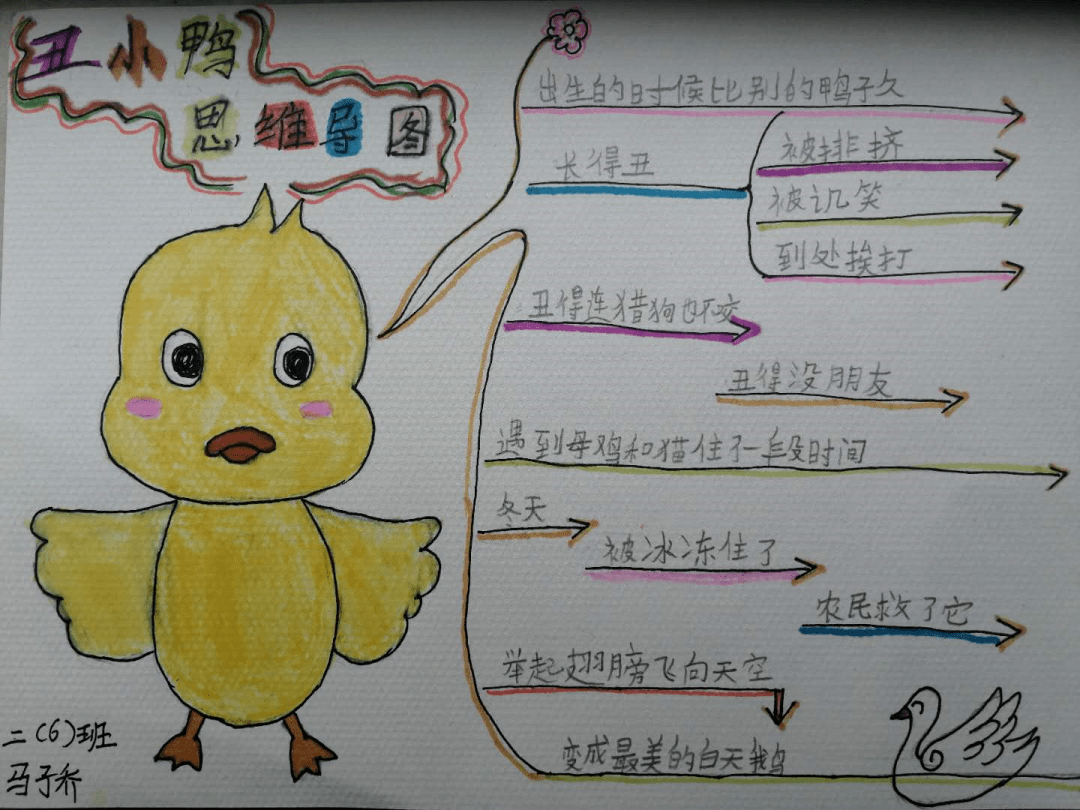 丑小鸭
思维导图
出生的时候比别的鸭子久
长得丑
被排挤
被讥笑
到处挨打
丑得连猎狗也不咬
丑得没朋友
遇到母鸡和猫住不一段时间
冬天
被冰冻住了
农民救了它
举起翅膀飞向天空
变成最美的白天鹅
二(6)班
马子乔